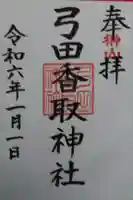 奉拝
弓田香取神社
令和六年一月一日